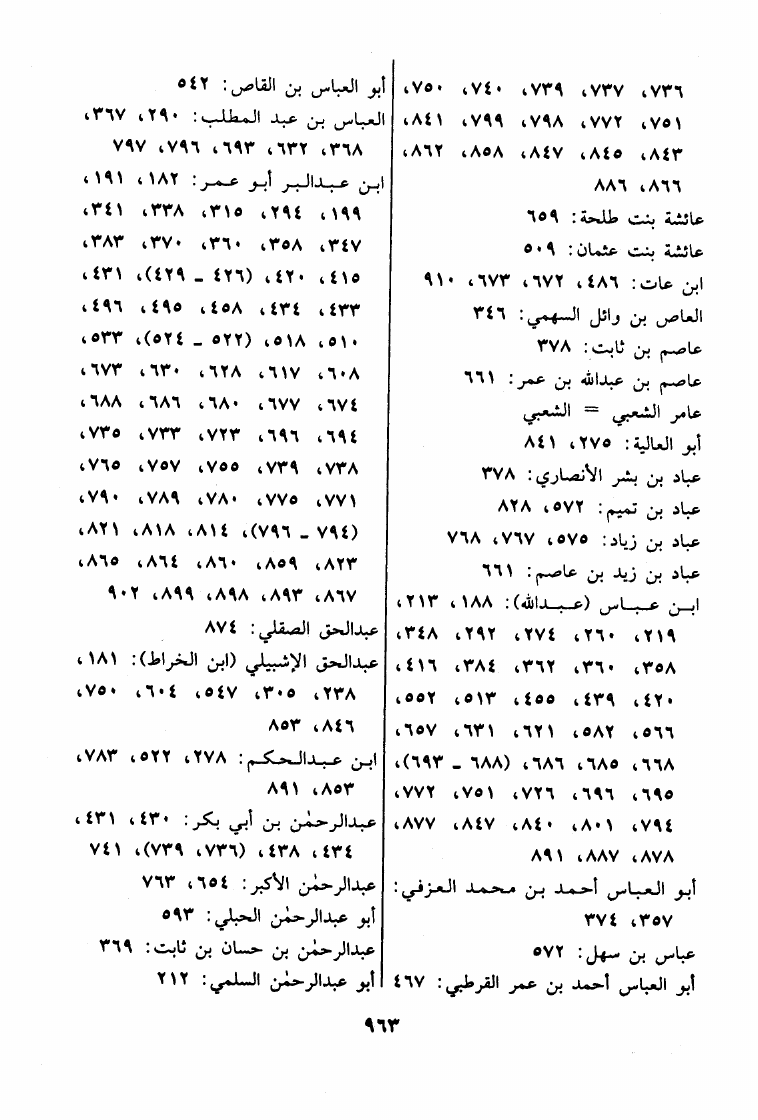 ٧٣٦، ٧٣٧، ٧٣٩، ٧٤٠، ٧٥٠،
٧٥١، ٧٧٢، ٧٩٨، ٧٩٩، ٨٤١،
٨٤٣، ٨٤٥، ٨٤٧، ٨٥٨، ٨٦٢،
٨٦٦، ٨٨٦
عائشة بنت طلحة: ٦٥٩
عائشة بنت عثمان: ٥٠٩
ابن عات: ٤٨٦، ٦٧٢، ٦٧٣، ٩١٠
العاص بن وائل السهمي: ٣٤٦
عاصم بن ثابت: ٣٧٨
عاصم بن عبدالله بن عمر: ٦٦١
عامر الشعبي = الشعبي
أبو العالية: ٢٧٥، ٨٤١
عباد بن بشر الأنصاري: ٣٧٨
عباد بن تميم: ٥٧٢، ٨٢٨
عباد بن زياد: ٥٧٥، ٧٦٧، ٧٦٨
عباد بن زيد بن عاصم: ٦٦١
ابن عباس (عبدالله): ١٨٨، ٢١٣،
٢١٩، ٢٦٠، ٢٧٤، ٢٩٢، ٣٤٨،
٣٥٨، ٣٦٠، ٣٦٢، ٣٨٤، ٤١٦،
٤٢٠، ٤٣٩، ٤٥٥، ٥١٣، ٥٥٢،
٥٦٦، ٥٨٢، ٦٢١، ٦٣١، ٦٥٧،
٦٦٨، ٦٨٥، ٦٨٦، (٦٨٨ ـ ٦٩٣)،
٦٩٥، ٦٩٦، ٧٢٦، ٧٥١، ٧٧٢،
٧٩٤، ٨٠١، ٨٤٠، ٨٤٧، ٨٧٧،
٨٧٨، ٨٨٧، ٨٩١
أبو العباس أحمد بن محمد العزفي:
٣٥٧، ٣٧٤
عباس بن سهل: ٥٧٢
أبو العباس أحمد بن عمر القرطبي: ٤٦٧
أبو العباس بن القاص: ٥٤٢
العباس بن عبد المطلب: ٢٩٠، ٣٦٧،
٣٦٨، ٦٣٢، ٦٩٣، ٧٩٦، ٧٩٧
ابن عبدالبر أبو عمر: ١٨٢، ١٩١،
١٩٩، ٢٩٤، ٣١٥، ٣٣٨، ٣٤١،
٣٤٧، ٣٥٨، ٣٦٠، ٣٧٠، ٣٨٣،
٤١٥، ٤٢٠، (٤٢٦ ـ ٤٢٩)، ٤٣١،
٤٣٣، ٤٣٤، ٤٥٨، ٤٩٥، ٤٩٦،
٥١٠، ٥١٨، (٥٢٢ ـ ٥٢٤)، ٥٣٣،
٦٠٨، ٦١٧، ٦٢٨، ٦٣٠، ٦٧٣،
٦٧٤، ٦٧٧، ٦٨٠، ٦٨٦، ٦٨٨،
٦٩٤، ٦٩٦، ٧٢٣، ٧٣٣، ٧٣٥،
٧٣٨، ٧٣٩، ٧٥٥، ٧٥٧، ٧٦٥،
٧٧١، ٧٧٥، ٧٨٠، ٧٨٩، ٧٩٠،
(٧٩٤ ـ ٧٩٦)، ٨١٤، ٨١٨، ٨٢١،
٨٢٣، ٨٥٩، ٨٦٠، ٨٦٤، ٨٦٥،
٨٦٧، ٨٩٣، ٨٩٨، ٨٩٩، ٩٠٢
عبدالحق الصقلي: ٨٧٤
عبدالحق الإشبيلي (ابن الخراط): ١٨١،
٢٣٨، ٣٠٥، ٥٤٧، ٦٠٤، ٧٥٠،
٨٤٦، ٨٥٣
ابن عبدالحكم: ٢٧٨، ٥٢٢، ٧٨٣،
٨٥٣، ٨٩١
عبدالرحمٰن بن أبي بكر: ٤٣٠، ٤٣١،
٤٣٤، ٤٣٨، (٧٣٦، ٧٣٩)، ٧٤١
عبدالرحمٰن الأكبر: ٦٥٤، ٧٦٣
أبو عبدالرحمٰن الحبلي: ٥٩٣
عبدالرحمٰن بن حسان بن ثابت: ٣٦٩
أبو عبدالرحمٰن السلمي: ٢١٢
٩٦٣